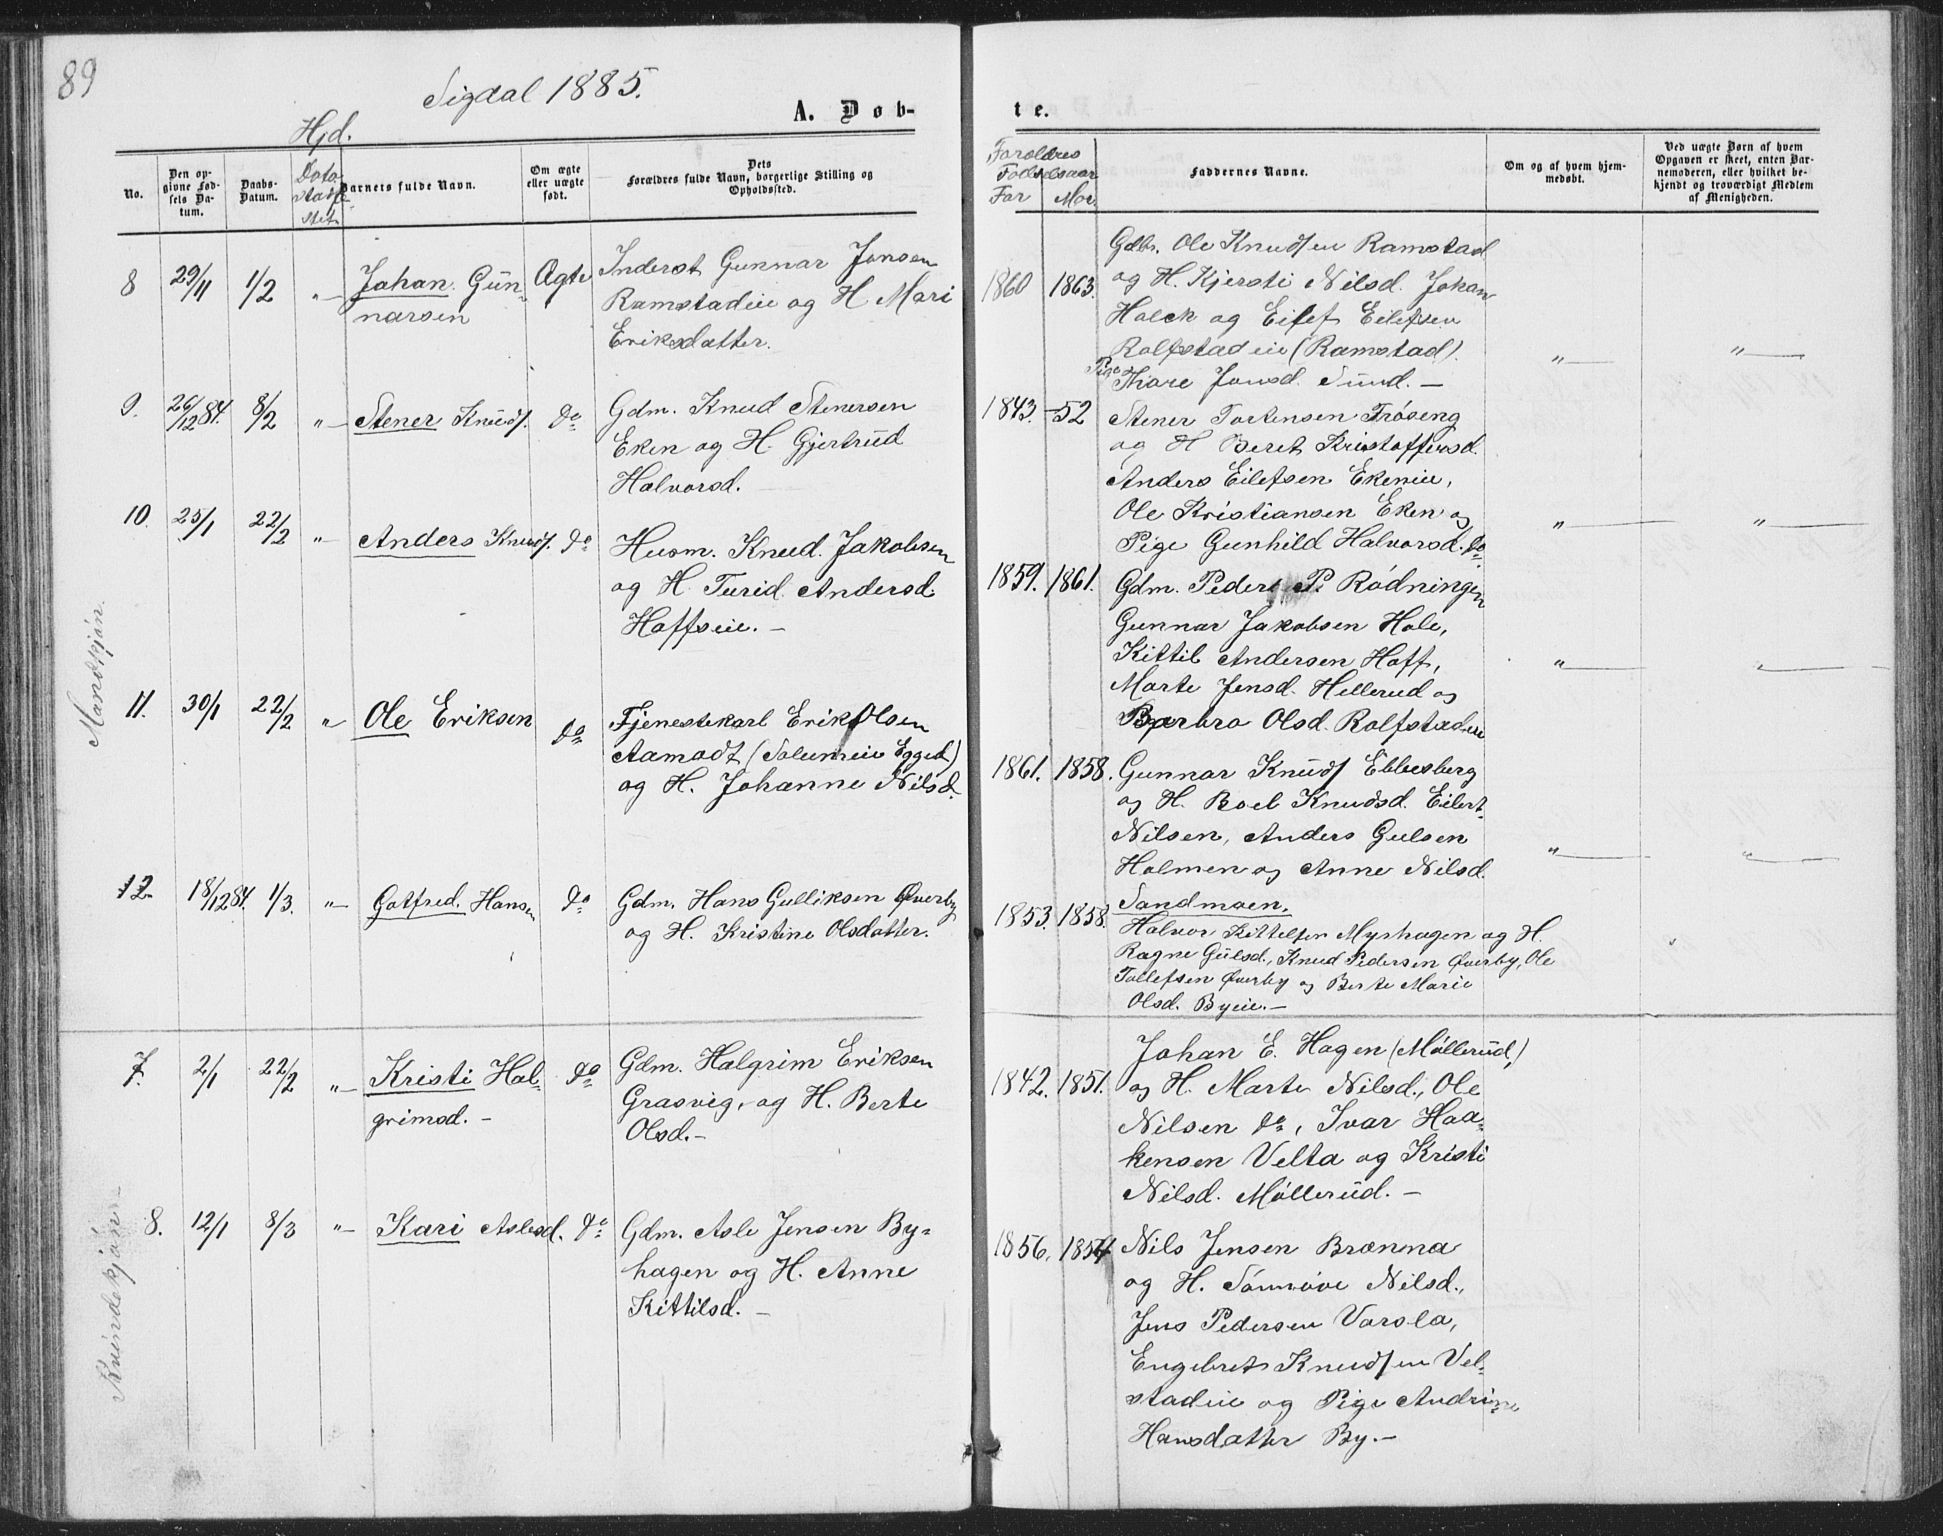 89
Sigdal 1885.
A. Døb-
te.
Hjd.
No.
Den op-
givne Fød-
sels Da-
tum.
Daabs-
Datum.
Dato
stadfe
stet
Barnets fulde Navn.
Om ægte
eller uægte
født.
Dets
Forældres fulde Navn, borgerlige Stilling og
Opholdssted.
Forældres
Fødselsaar
Far Mor.
Faddernes Navne.
Om og af hvem hjem-
medøbt.
Ved uægte Børn af hvem
Opgaven er skeet, enten Bar-
nemoderen, eller hvilket be-
kjendt og troværdigt Medlem
af Menigheden.
Mandkjøn.
8 29/11 1/2 "— Johan Gun-
narsen
Ægte
Inderst Gunnar Jonsen
Ramstadeie og H Mari
Eriksdatter.
1860 1863.
Gdbr. Ole Knudsen Ramstad
og H. Kjersti Nilsd. Johan
Halck og Eilef Eilefsen
Rolfstadeie (Ramstad).
Pige Thore Jonsd. Sund. —
"— "—
9. 26/12 84. 8/2 "— Stener Knuds. do
Gdm. Knud Stenersen
Eken og H. Gjertrud
Halvorsd.
1843. -52
Stener Torstensen Trøseng
og H Beret Kristoffersd.
Anders Eilefsen Ekeneie,
Ole Kristiansen Eken og
Pige Gunhild Halvorsd. do
"— "—
10. 25/1 22/2 "— Anders Knuds. do
Husm. Knud Jakobsen
og H. Turid Andersd.
Hoffseie. —
1859. 1861.
Gdm. Peder P. Rødningen
Gunnar Jakobsen Hole,
Kittil Andersen Hoff,
Marte Jensd. Hellerud og
Barbro Olsd. Rolfstadeie
"— "—
11. 30/1 22/2 "— Ole Eriksen do
Tjenestekarl Erik Olsen
Aamodt (Solumeie Eggedal)
og H. Johanne Nilsd.
1861. 1858.
Gunnar Knuds Ebbesberg
og H. Boel Knudsd. Eilert
Nilsen, Anders Gulsen
Holmen og Anne Nilsd.
Sandmoen.
"— "—
12. 18/12 84. 1/3. "— Gotfred Hansen do
Gdm. Hans Gulliksen Øverby
og H. Kristine Olsdatter.
1853. 1858.
Halvor Kittelsen Myrhagen og H.
Ragne Gulsd., Knud Pedersen Øverby, Ole
Tollefsen Øverby og Berte Marie
Olsd. Byeie. —
Kvindekjøn
7. 2/1 22/2 "— Kristi Hal-
grimsd. —
do
Gdm. Halgrim Eriksen
Grasvig, og H. Berte
Olsd. —
1842. 1851.
Johan E. Hagen (Møllerud,)
og H. Marte Nilsd., Ole
Nilsen do, Ivar Haa-
kensen Velta og Kristi
Nilsd. Møllerud. —
8. 12/1 8/3 "— Kari Aslesd. do
Gdm. Asle Jensen By-
hagen og H. Anne
Kittilsd. —
1856. 1854
Nils Jensen Brænna
og H. Sønnøve Nilsd.,
Jens Pedersen Varsla,
Engebret Knudsen Vel-
stadeie og Pige Andrine
Hansdatter By. —